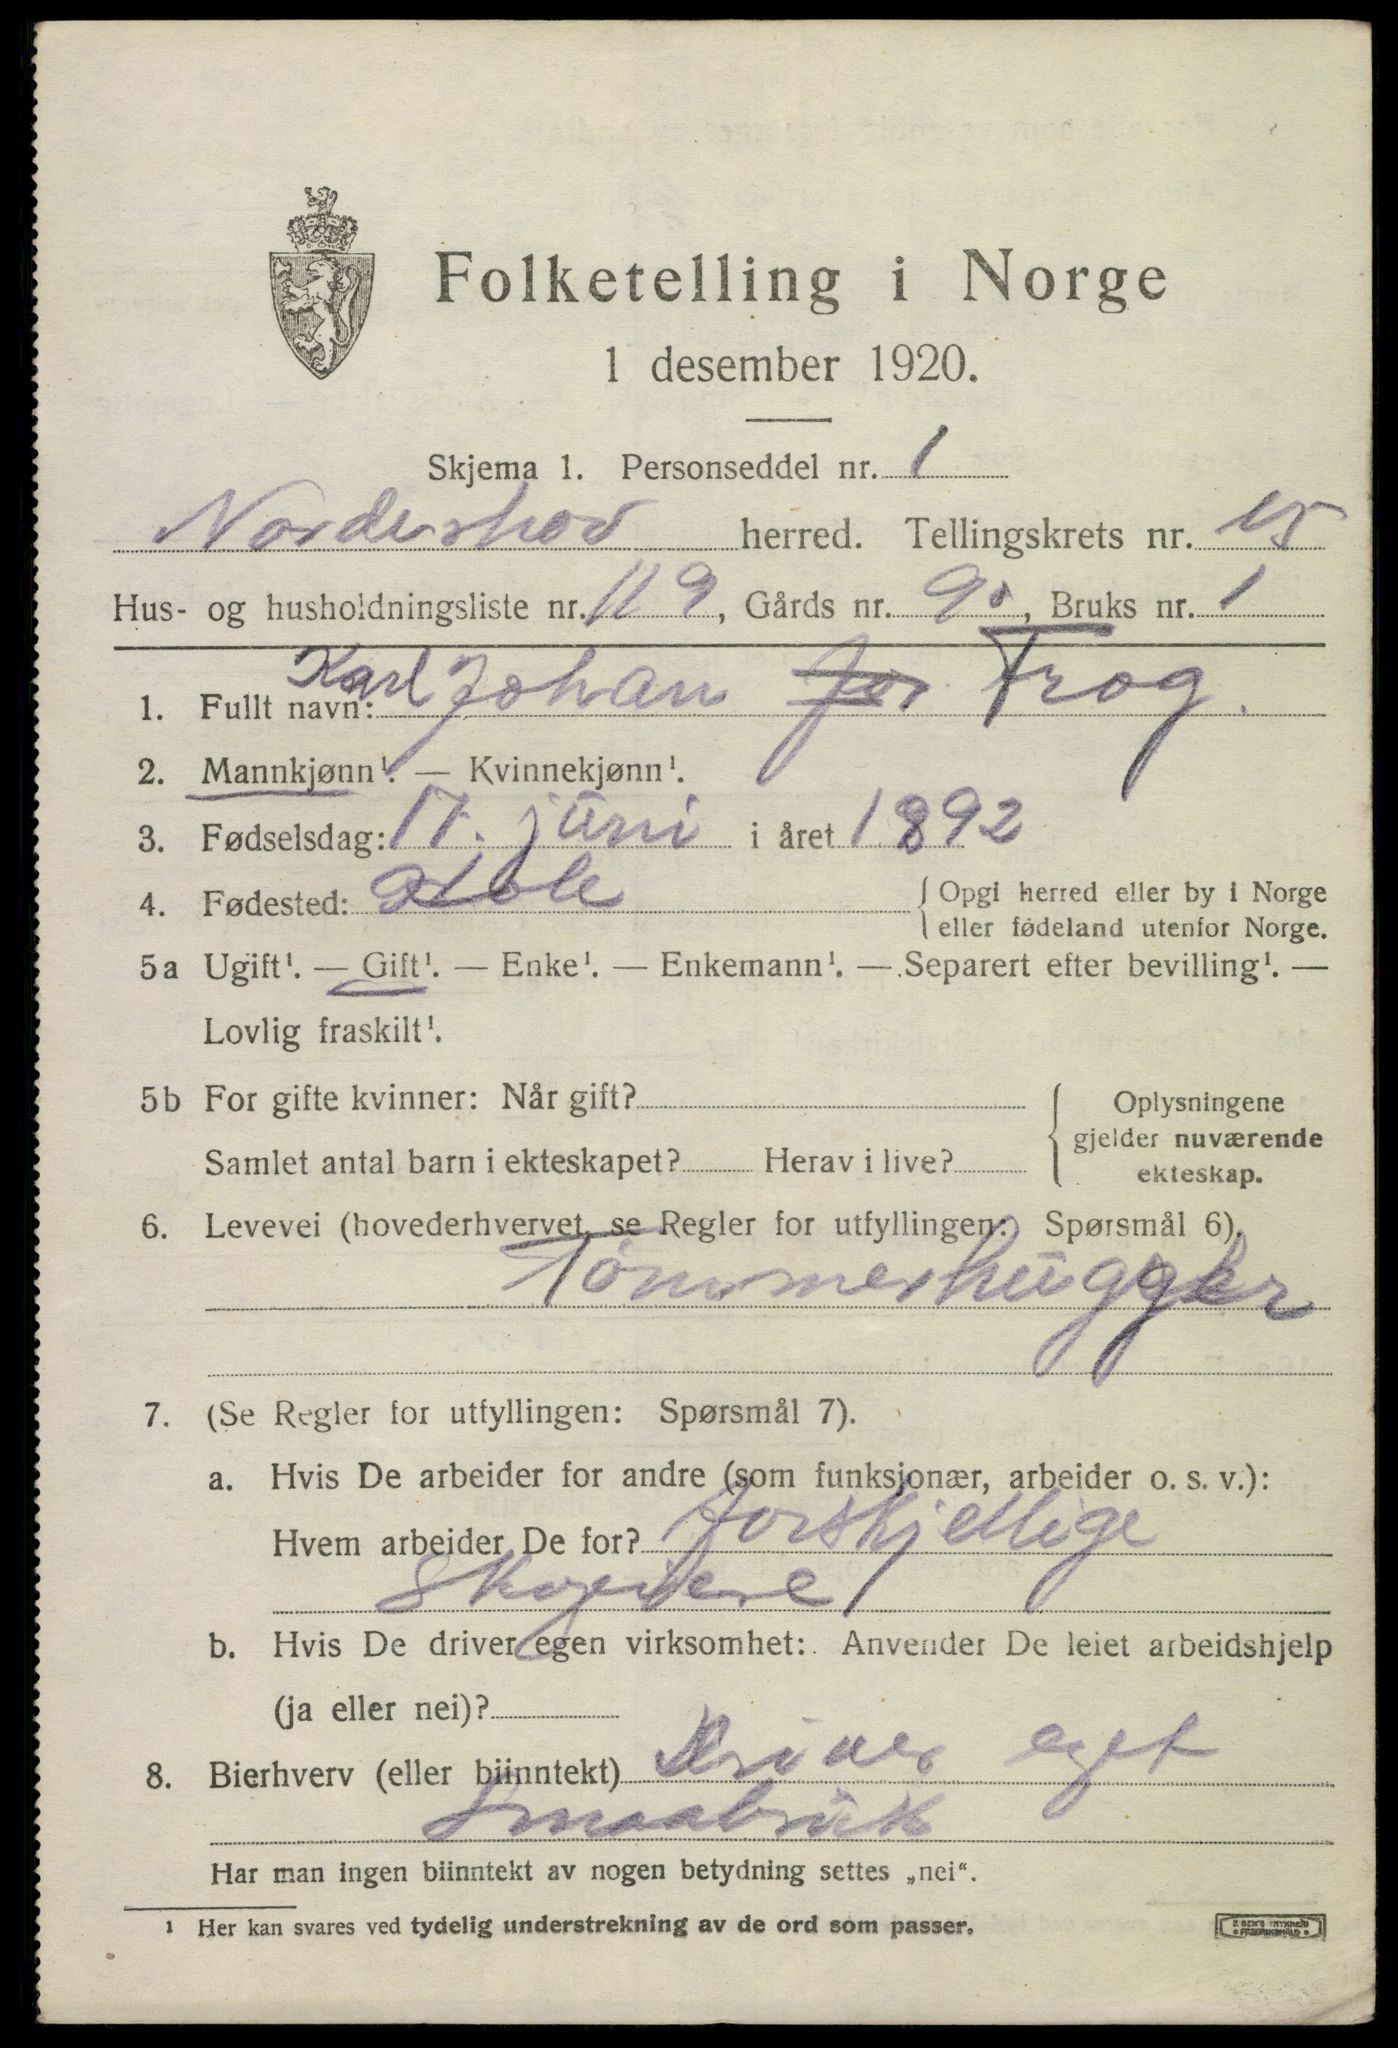 Folketelling i Norge
1 desember 1920.
Skjema 1. Personseddel nr. 1
Norderhov herred. Tellingskrets nr. 15
Hus- og husholdningsliste nr. 119, Gårds nr. 90, Bruks nr. 1
1. Fullt navn: Karl Johan Trog.
2. Mannkjønn¹. — Kvinnekjønn¹.
3. Fødselsdag: 17. juni i året 1892
4. Fødested: Hole { Opgi herred eller by i Norge
eller fødeland utenfor Norge.
5a Ugift¹. — Gift¹. — Enke¹. — Enkemann¹. — Separert efter bevilling¹. —
Lovlig fraskilt¹.
5b For gifte kvinner: Når gift? { Oplysningene
gjelder nuværende
Samlet antal barn i ekteskapet? Herav i live? ekteskap.
6. Levevei (hovederhvervet, se Regler for utfyllingen: Spørsmål 6).
Tømmerhugger
7. (Se Regler for utfyllingen: Spørsmål 7).
a. Hvis De arbeider for andre (som funksjonær, arbeider o. s. v.):
Hvem arbeider De for? forskjellige
Skogeiere
b. Hvis De driver egen virksomhet: Anvender De leiet arbeidshjelp
(ja eller nei)?
8. Bierhverv (eller biinntekt) Driver eget
Smaabruk
Har man ingen biinntekt av nogen betydning settes „nei“.
¹ Her kan svares ved tydelig understrekning av de ord som passer.